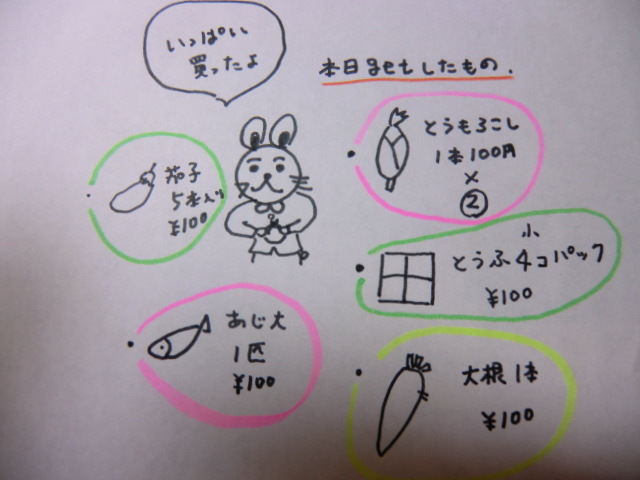 いっぱい
買ったよ
本日getしたもの.
とうもろこし
1本100円
×
②
茄子
5本入り
¥100
小
とうふ4コパック
¥100
あじ大
1匹
¥100
大根1本
¥100